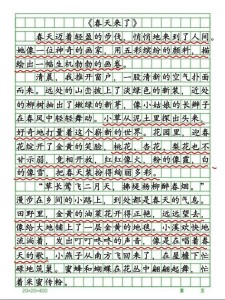 《春天来了》
春天迈着轻盈的步伐，悄悄地来到了人间。
她像一位神奇的画家，用五彩缤纷的颜料，描
绘出一幅生机勃勃的画卷。
清晨，我推开窗户，一股清新的空气扑面
而来。远处的山峦换上了淡绿色的新装，近处
的柳树抽出了嫩绿的新芽，像小姑娘的长辫子
在春风中轻轻舞动。小草从泥土里探出头来，
好奇地打量着这个崭新的世界。花园里，迎春
花绽开了金黄的笑脸，桃花、杏花、梨花也不
甘示弱，竞相开放，红的像火，粉的像霞，白
的像雪，把春天装扮得绚丽多彩。
“草长莺飞二月天，拂堤杨柳醉春烟。”
漫步在乡间的小路上，到处都是春天的气息。
田野里，金黄的油菜花开得正艳，远远望去，
像给大地铺上了一层金黄的地毯。小溪欢快地
流淌着，发出叮叮咚咚的声音，像是在唱着春
天的歌。小燕子从南方飞回来了，在屋檐下忙
碌地筑巢。蜜蜂和蝴蝶在花丛中翩翩起舞，忙
着采蜜传粉。
20×20=400
第 页